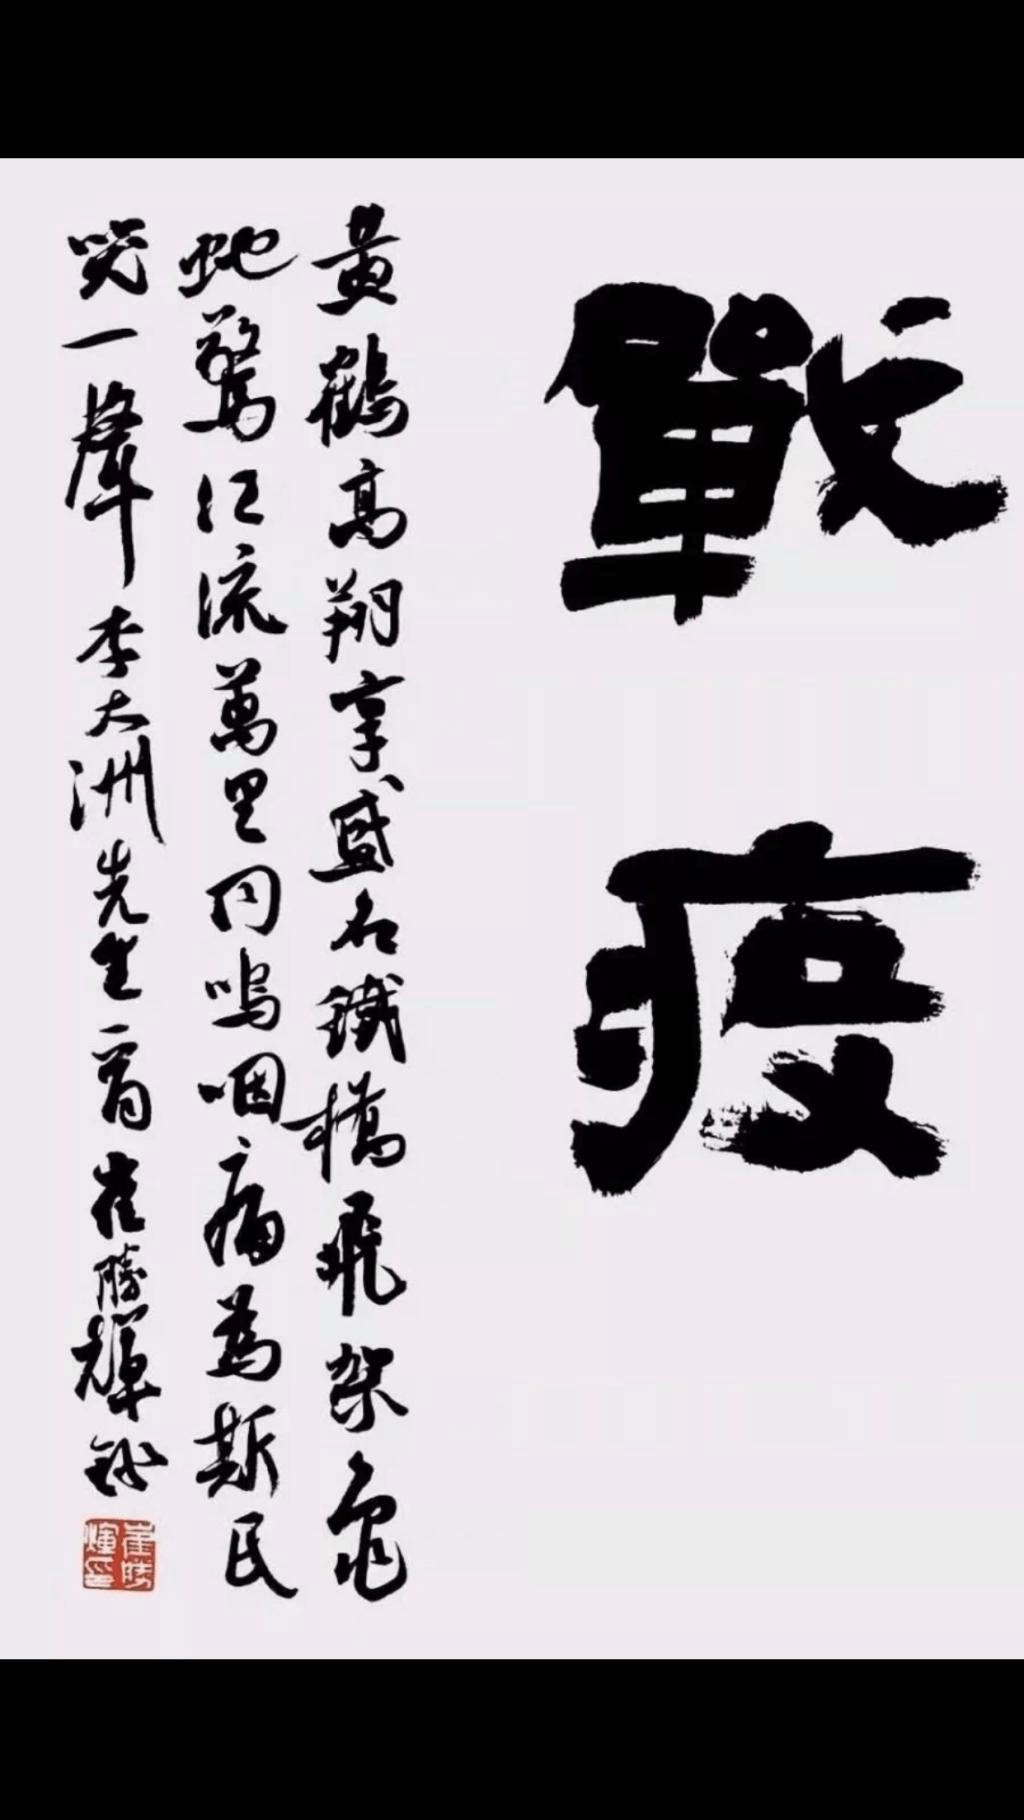 戰疫
黃鶴高翔享盛名鐵橋飛架龜
蛇驚江流萬里同嗚咽痛為斯民
哭一聲李大洲先生一首崔勝輝錄
崔勝
輝印